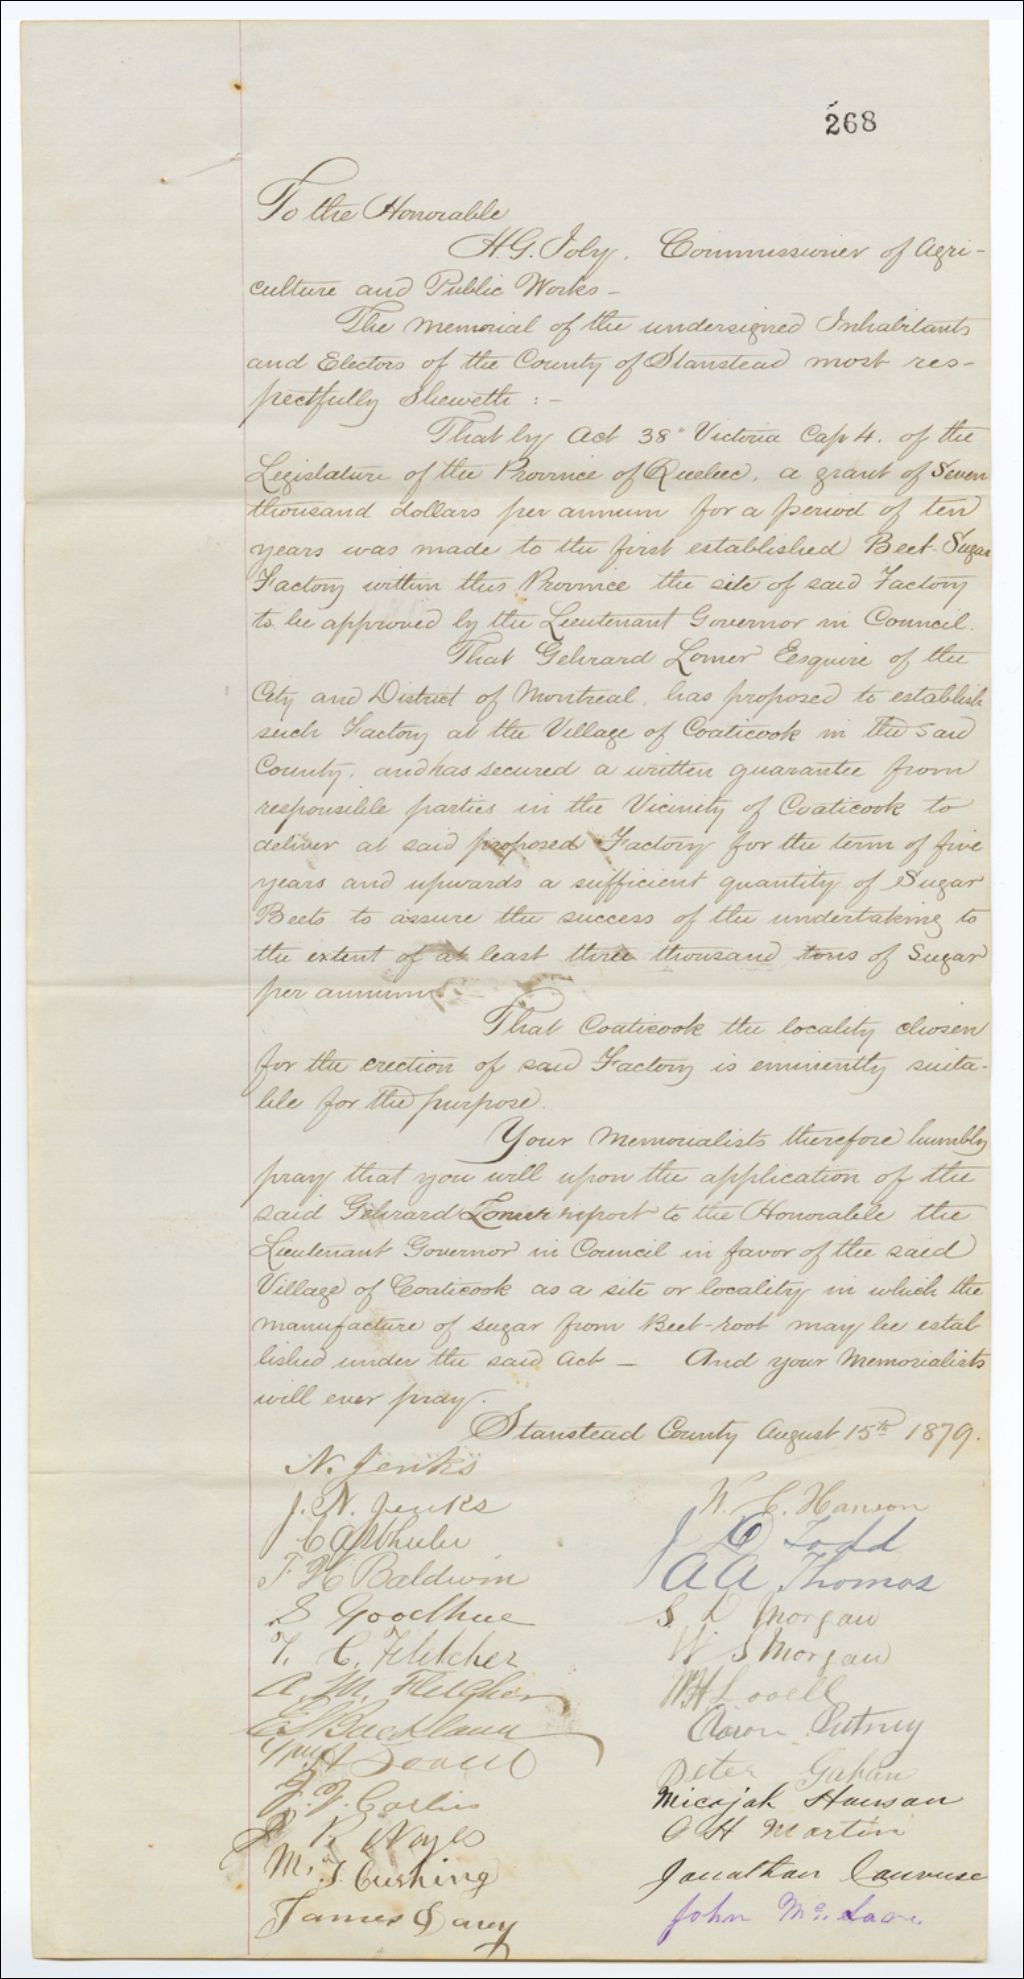 268
To the Honorable
H. G. Joly. Commissioner of Agri-
culture and Public Works -
The Memorial of the undersigned Inhabitants
and Electors of the County of Stanstead most res-
pectfully Sheweth : -
That by Act 38° Victoria Cap 4. of the
Legislature of the Province of Quebec, a grant of Seven
thousand dollars per annum for a period of ten
years was made to the first established Beet-Sugar
Factory within this Province the site of said Factory
to be approved by the Lieutenant Governor in Council.
That Gehrard Lomer Esquire of the
City and District of Montreal, has proposed to establish
such Factory at the Village of Coaticook in the said
County, and has secured a written guarantee from
responsible parties in the Vicinity of Coaticook to
deliver at said proposed Factory for the term of five
years and upwards a sufficient quantity of Sugar
Beets to assure the success of the undertaking to
the extent of at least three thousand tons of Sugar
per annum.
That Coaticook the locality chosen
for the erection of said Factory is eminently suita-
ble for the purpose.
Your Memorialists therefore humbly
pray that you will upon the application of the
said Gehrard Lomer report to the Honorable the
Lieutenant Governor in Council in favor of the said
Village of Coaticook as a site or locality in which the
manufacture of sugar from Beet-root may be estab
lished under the said Act - And your Memorialists
will ever pray.
Stanstead County August 15th 1879.
N. Jenks
J. N. Jenks
C A Wheeler
F H Baldwin
S Goodhue
T. C. Fletcher
A. M. Fletcher
E S Buckland
Wm H
J. F. Corliss
R Noyes
M. T. Cushing
James Davy
W. C. Hanson
J D Todd
A A Thomas
S D Morgan
W S Morgan
W H Lovell
Aaron Putney
Peter Gahan
Micajah Hanson
O H Martin
Jonathan
John Mc.